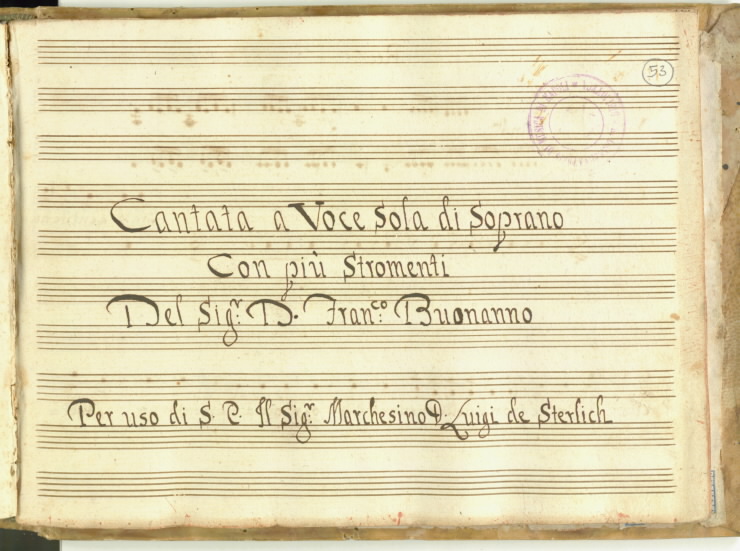 53
Cantata a Voce Sola di Soprano
Con più Stromenti
Del Sig.r D. Fran.co Buonanno
Per uso di S. E. Il Sig.r Marchesino D. Luigi de Sterlich